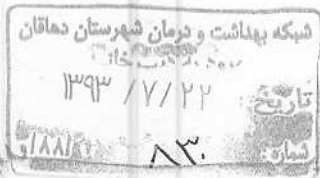 شبکه بهداشت و درمان شهرستان دهاقان
تاریخ: ۱۳۹۳/۷/۲۲
شماره: ۸۳۰ /۸۸/و